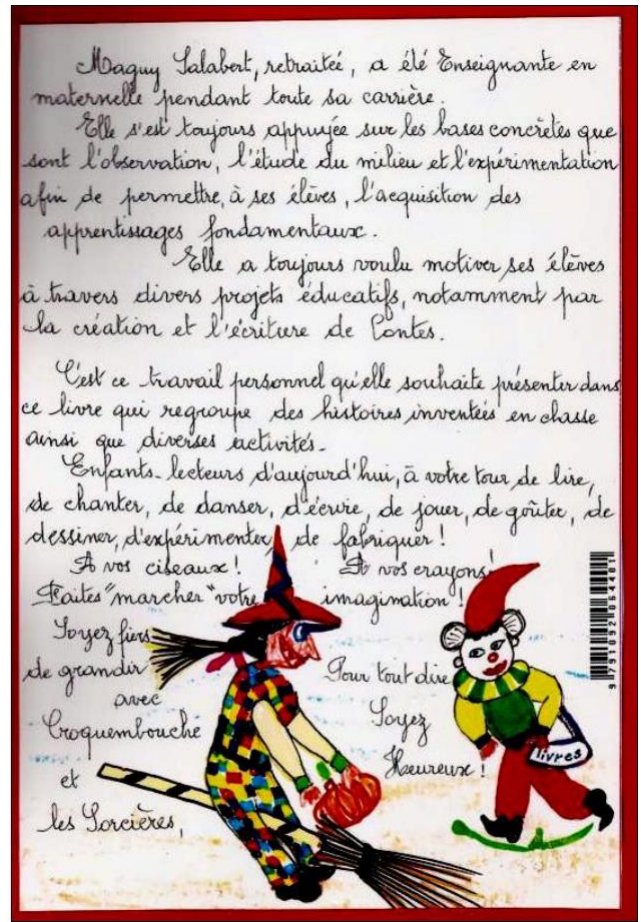 Maguy Salabert, retraitée, a été Enseignante en
maternelle pendant toute sa carrière.
Elle s'est toujours appuyée sur les bases concrètes que
sont l'observation, l'étude du milieu et l'expérimentation
afin de permettre, à ses élèves, l'acquisition des
apprentissages fondamentaux.
Elle a toujours voulu motiver ses élèves
à travers divers projets éducatifs, notamment par
la création et l'écriture de Contes.
C'est ce travail personnel qu'elle souhaite présenter dans
ce livre qui regroupe des histoires inventées en classe
ainsi que diverses activités.
Enfants-lecteurs d'aujourd'hui, à votre tour de lire,
de chanter, de danser, d'écrire, de jouer, de goûter, de
dessiner, d'expérimenter, de fabriquer !
A vos ciseaux ! A vos crayons !
Faites "marcher" votre imagination !
Soyez fiers
de grandir
avec
Croquembouche
et
les Sorcières,
Pour tout dire
Soyez
Heureux !
livres
9791092064401